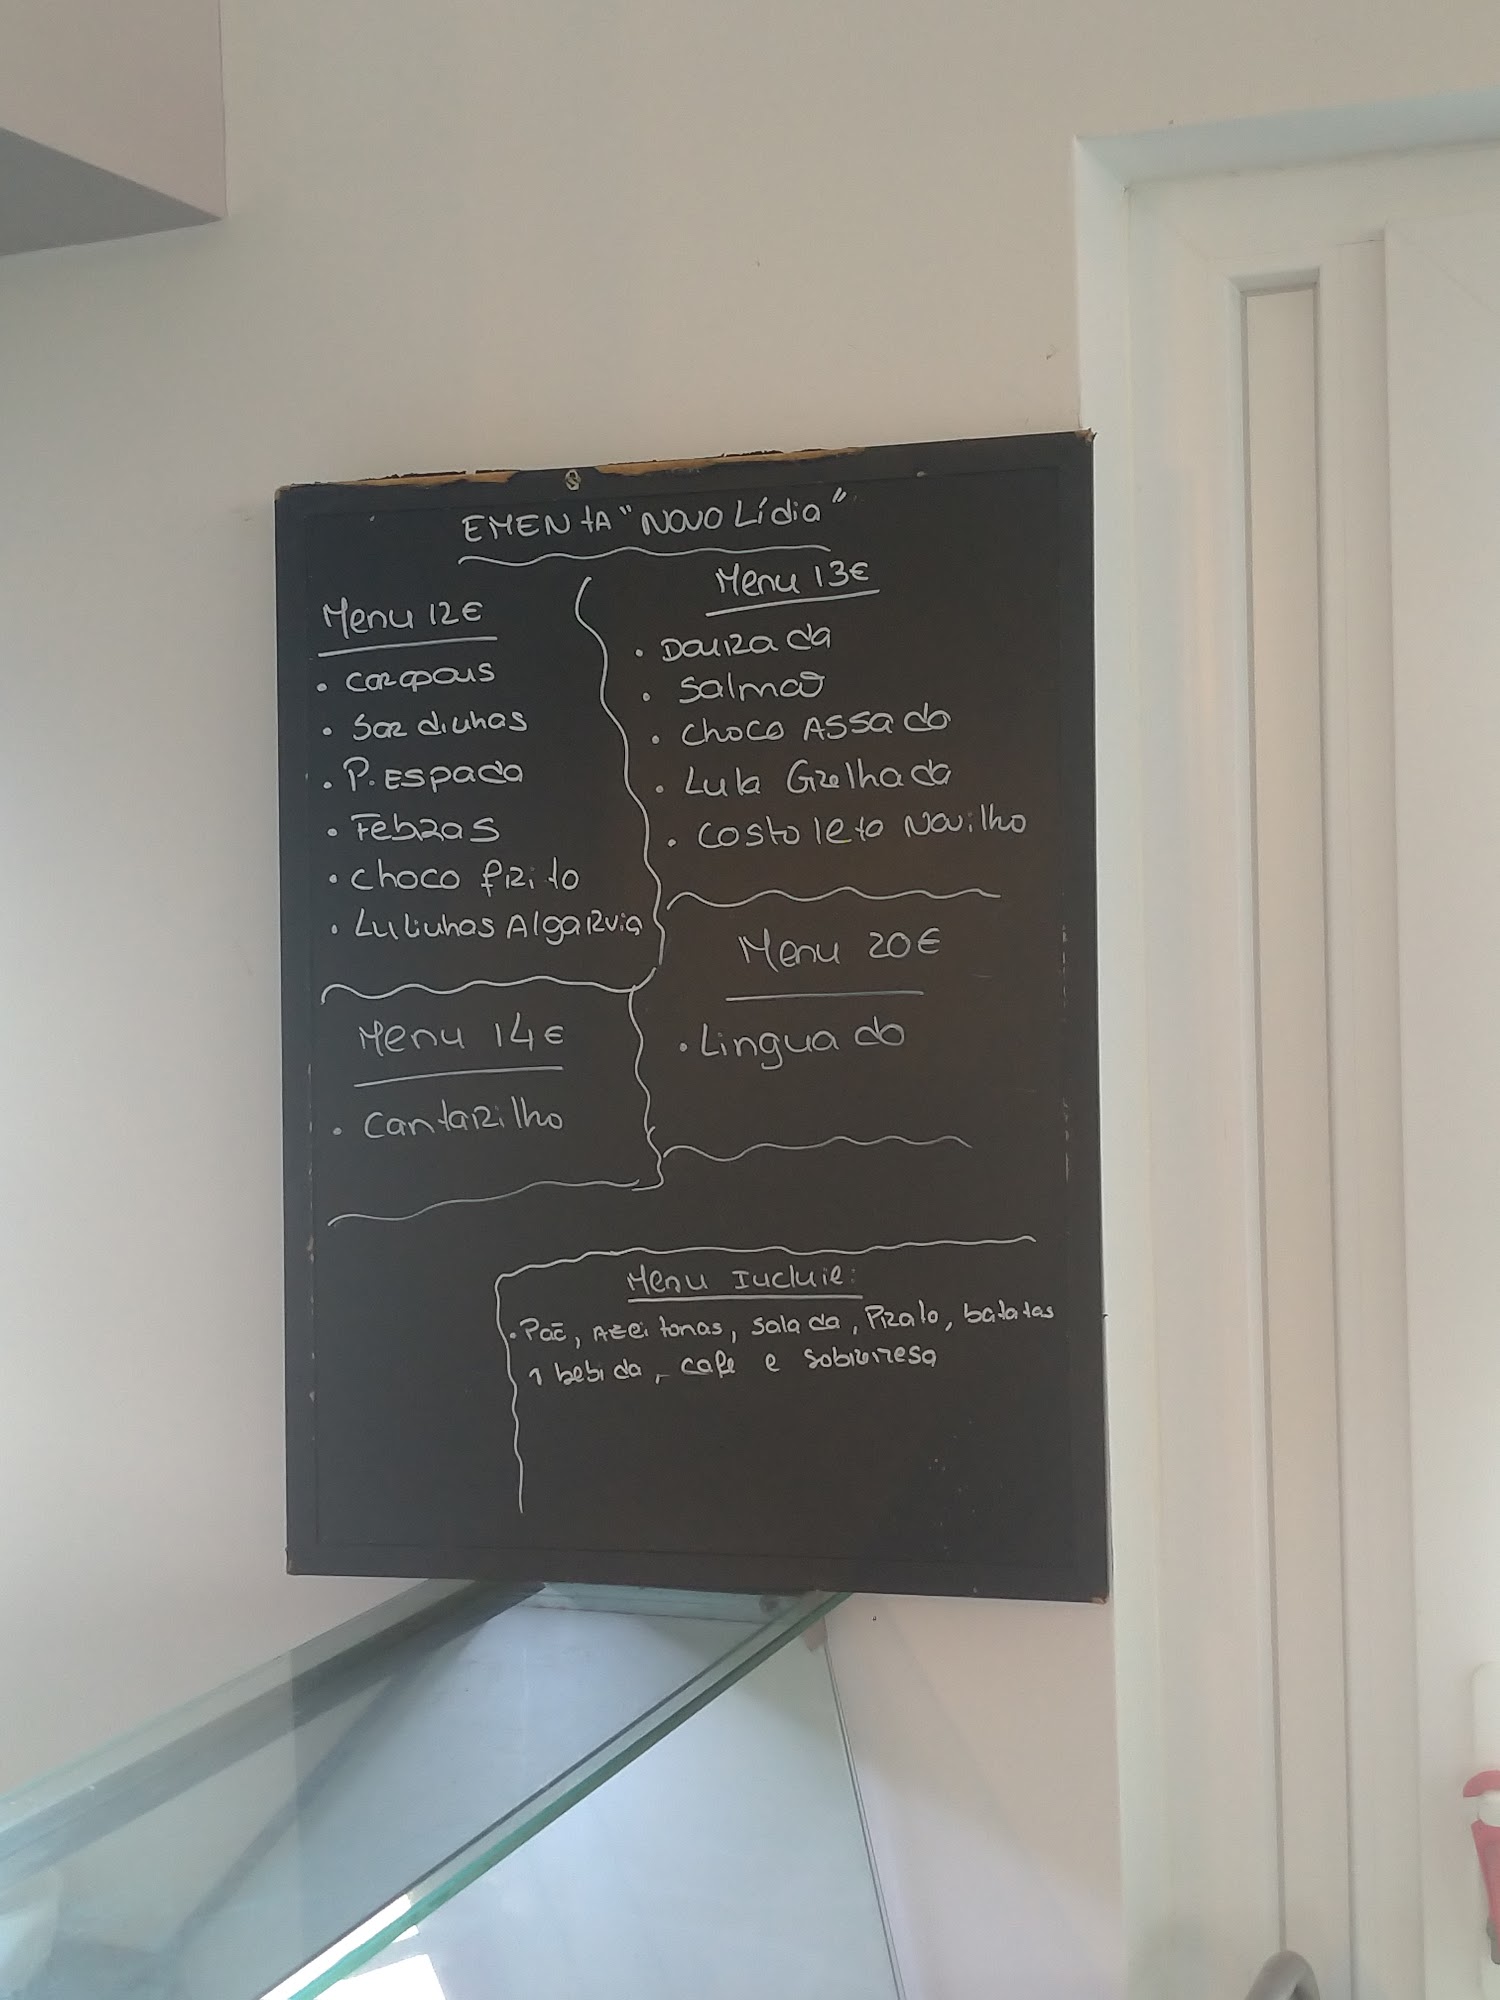 EMENtA "NOVO Lídia"
Menu 12€
• carapaus
• Sardinhas
• P. ESpada
• Febras
• choco frito
• Lulinhas Algarvia
Menu 13€
• Dourada
• Salmão
• choco ASSado
• Lula Grelhada
• Costoleto Novilho
Menu 14€
• Cantarilho
Menu 20€
• Linguado
Menu Incluie:
• Paē, Azeitonas, Salada, Prato, batatas
1 bebida, cafe e Sobremesa